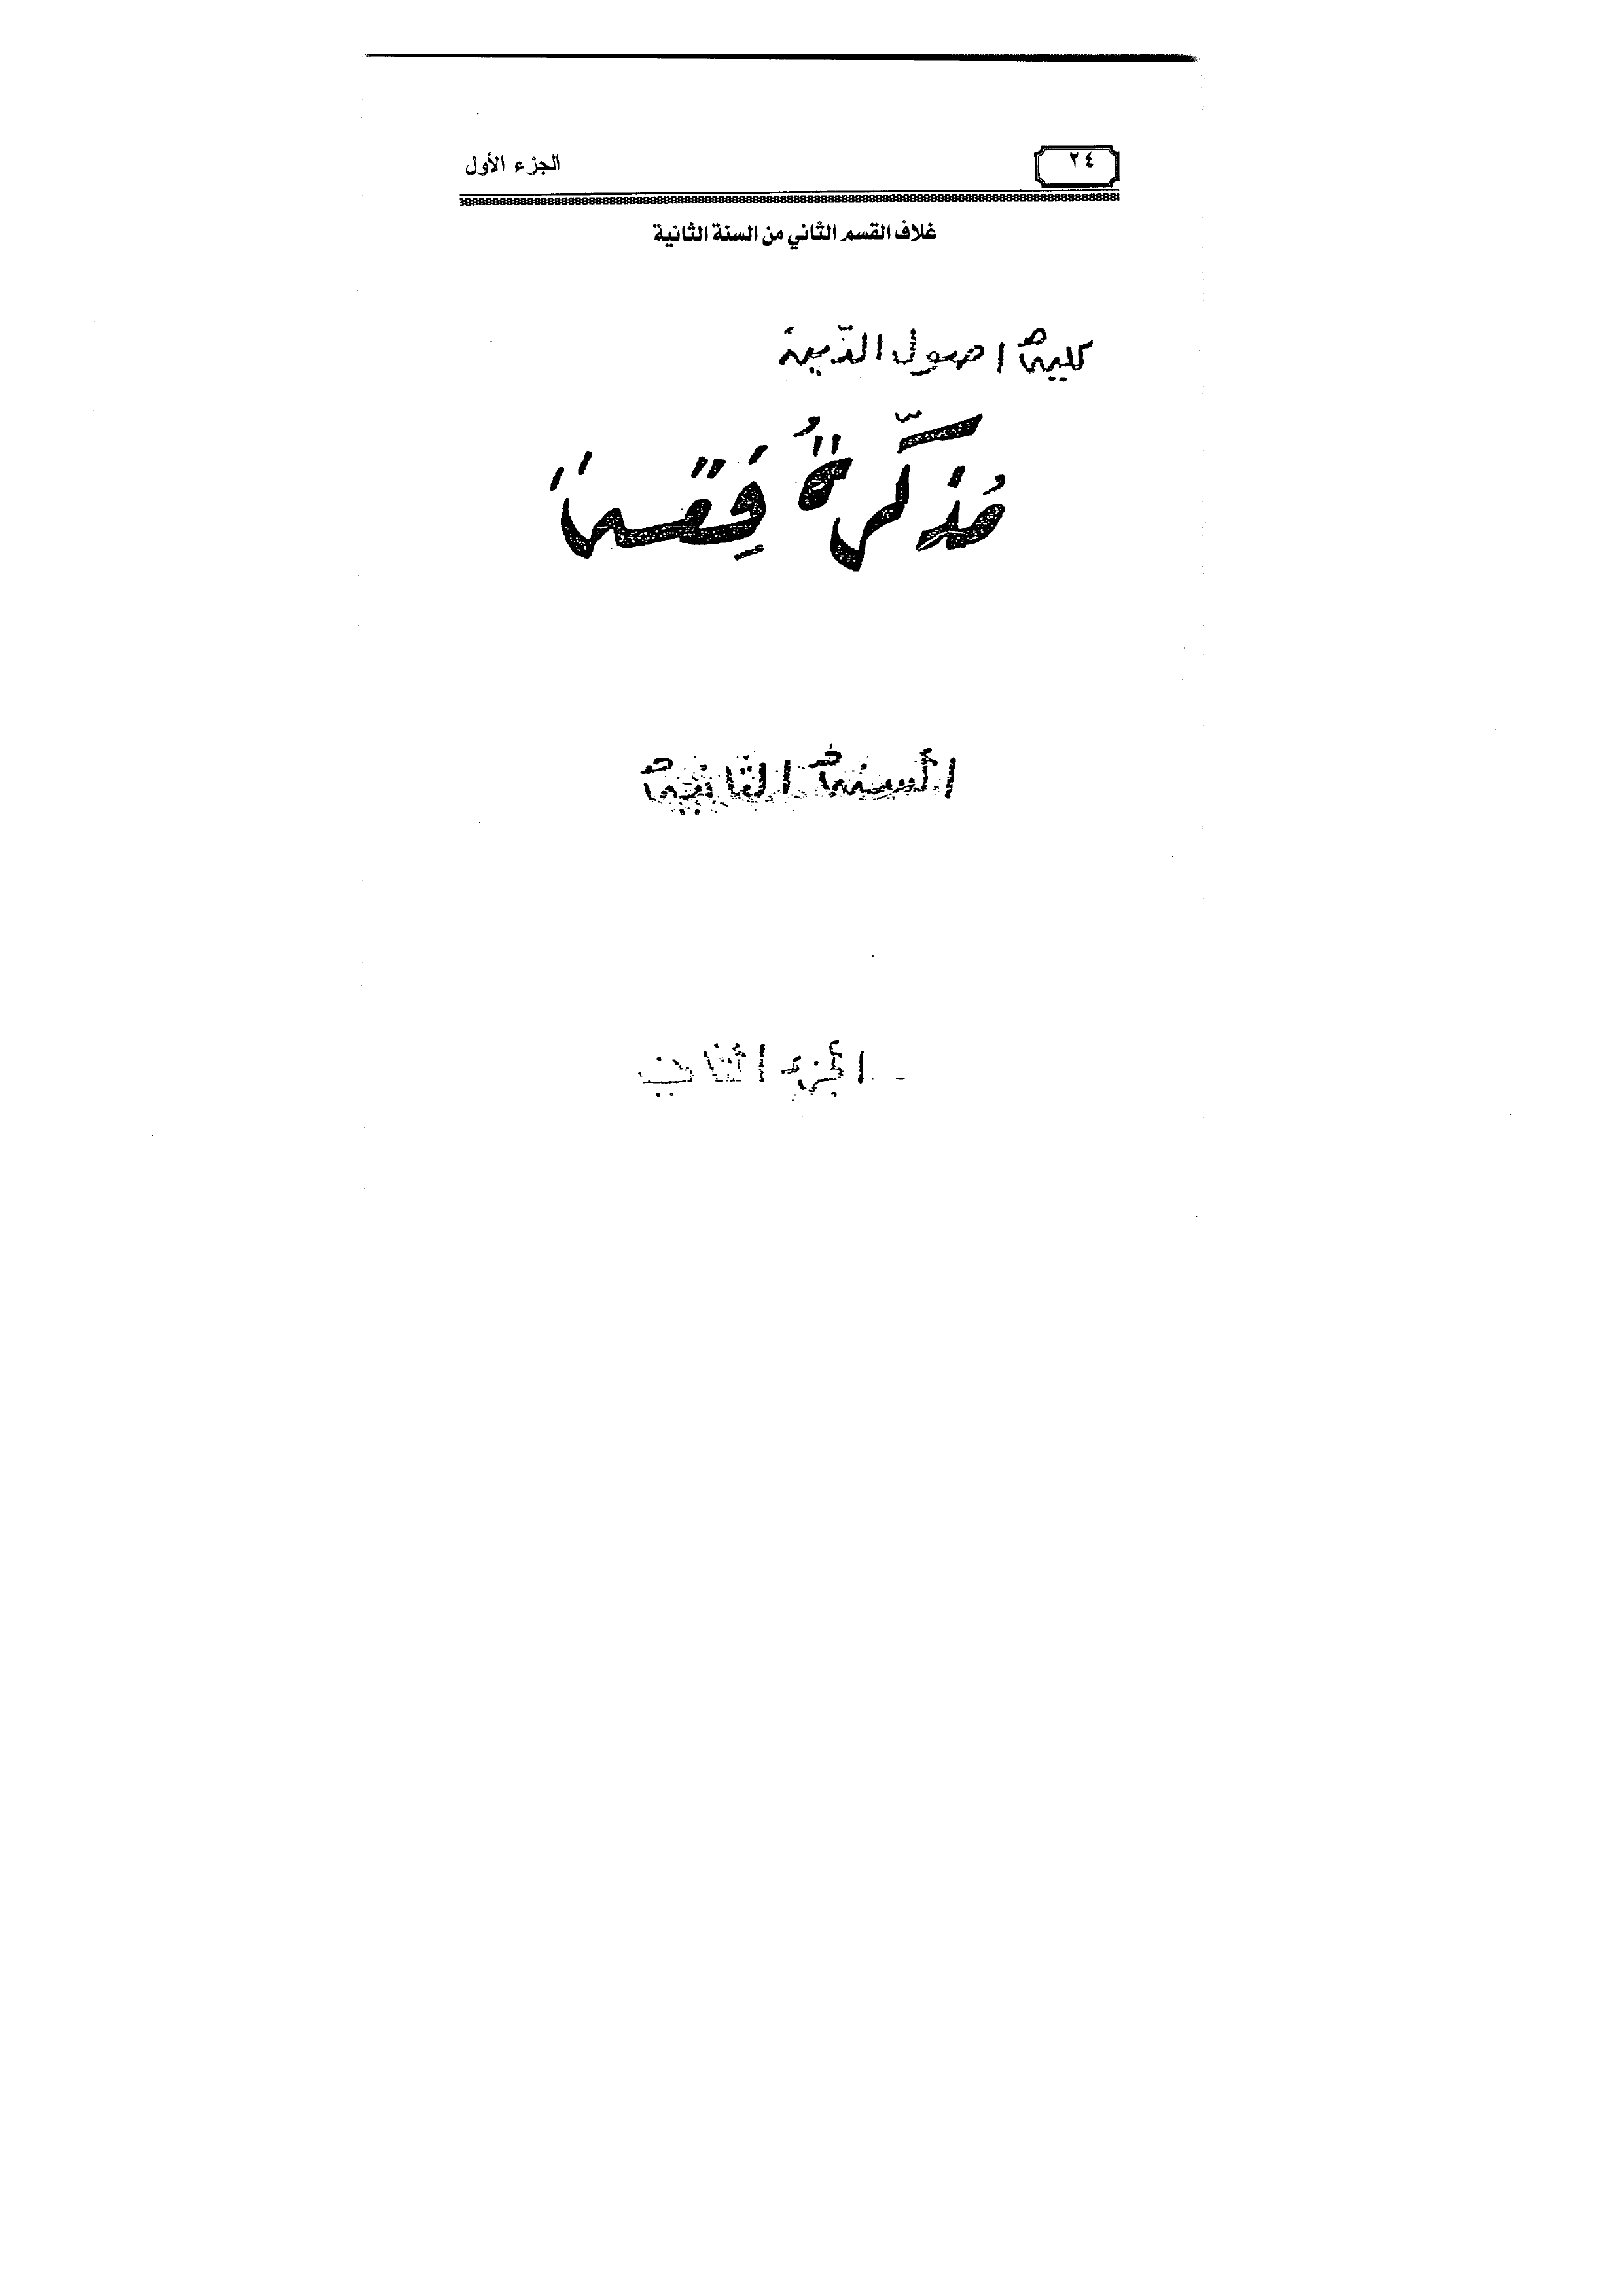 ٢٤ الجزء الأول
غلاف القسم الثاني من السنة الثانية
كلية اصول الدّين
مُذكّرةٌ فِقه
السنة الثانية
الجزء الثاني